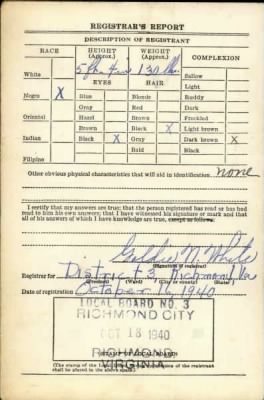 REGISTRAR'S REPORT
DESCRIPTION OF REGISTRANT
RACE HEIGHT (Approx.) WEIGHT (Approx.) COMPLEXION
White 5 ft 130 Sallow
EYES HAIR Light
Negro X Blue Blonde Ruddy
Gray Red Dark
Oriental Hazel Brown Freckled
Brown Black X Light brown
Indian Black X Gray Dark brown X
Bald Black
Filipino
Other obvious physical characteristics that will aid in identification none
I certify that my answers are true; that the person registered has read or has had
read to him his own answers; that I have witnessed his signature or mark and that
all of his answers of which I have knowledge are true, except as follows:
Goldie N. White
(Signature of registrar)
Registrar for District 3, Richmond Va
(Precinct) (Ward) (City or county) (State)
Date of registration October 16, 1940
LOCAL BOARD NO. 3
RICHMOND CITY
OCT 18 1940
RICHMOND
VIRGINIA